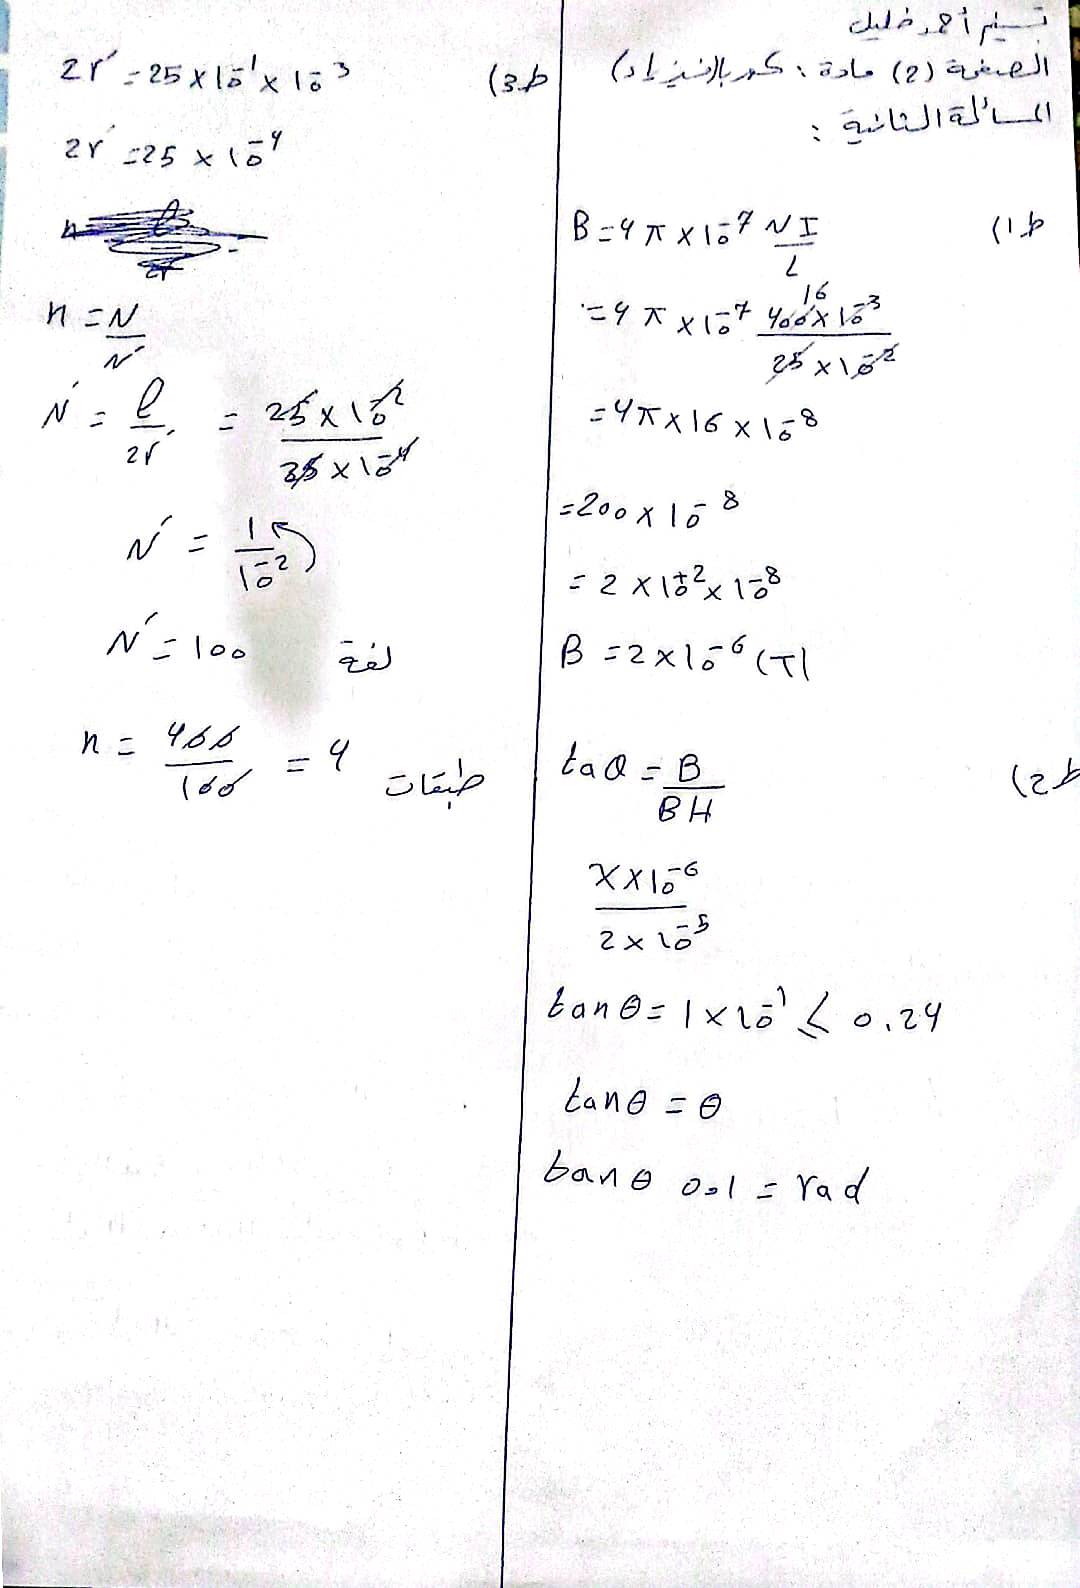 تسنيم أحمد خليل
الصفحة (2) مادة: كهربا (فيزياء)
المسألة الثانية:
ط1)
B = 4π × 10^-7 NI/L
= 4π × 10^-7 (400 × 10^-3)/(25 × 10^-2) 16
= 4π × 16 × 10^-8
= 200 × 10^-8
= 2 × 10^+2 × 10^-8
B = 2 × 10^-6 (T)
ط2)
taθ = B/BH
(2 × 10^-6)/(2 × 10^-5)
tanθ = 1 × 10^-1 ≤ 0.24
tanθ = θ
tanθ 0.1 = rad
ط3)
2r' = 25 × 10^-1 × 10^-3
2r' = 25 × 10^-4
n = N/N'
N' = l/2r' = (25 × 10^-2)/(25 × 10^-4)
N' = 1/10^-2
N' = 100 لفة
n = 400/100 = 4 طبقات